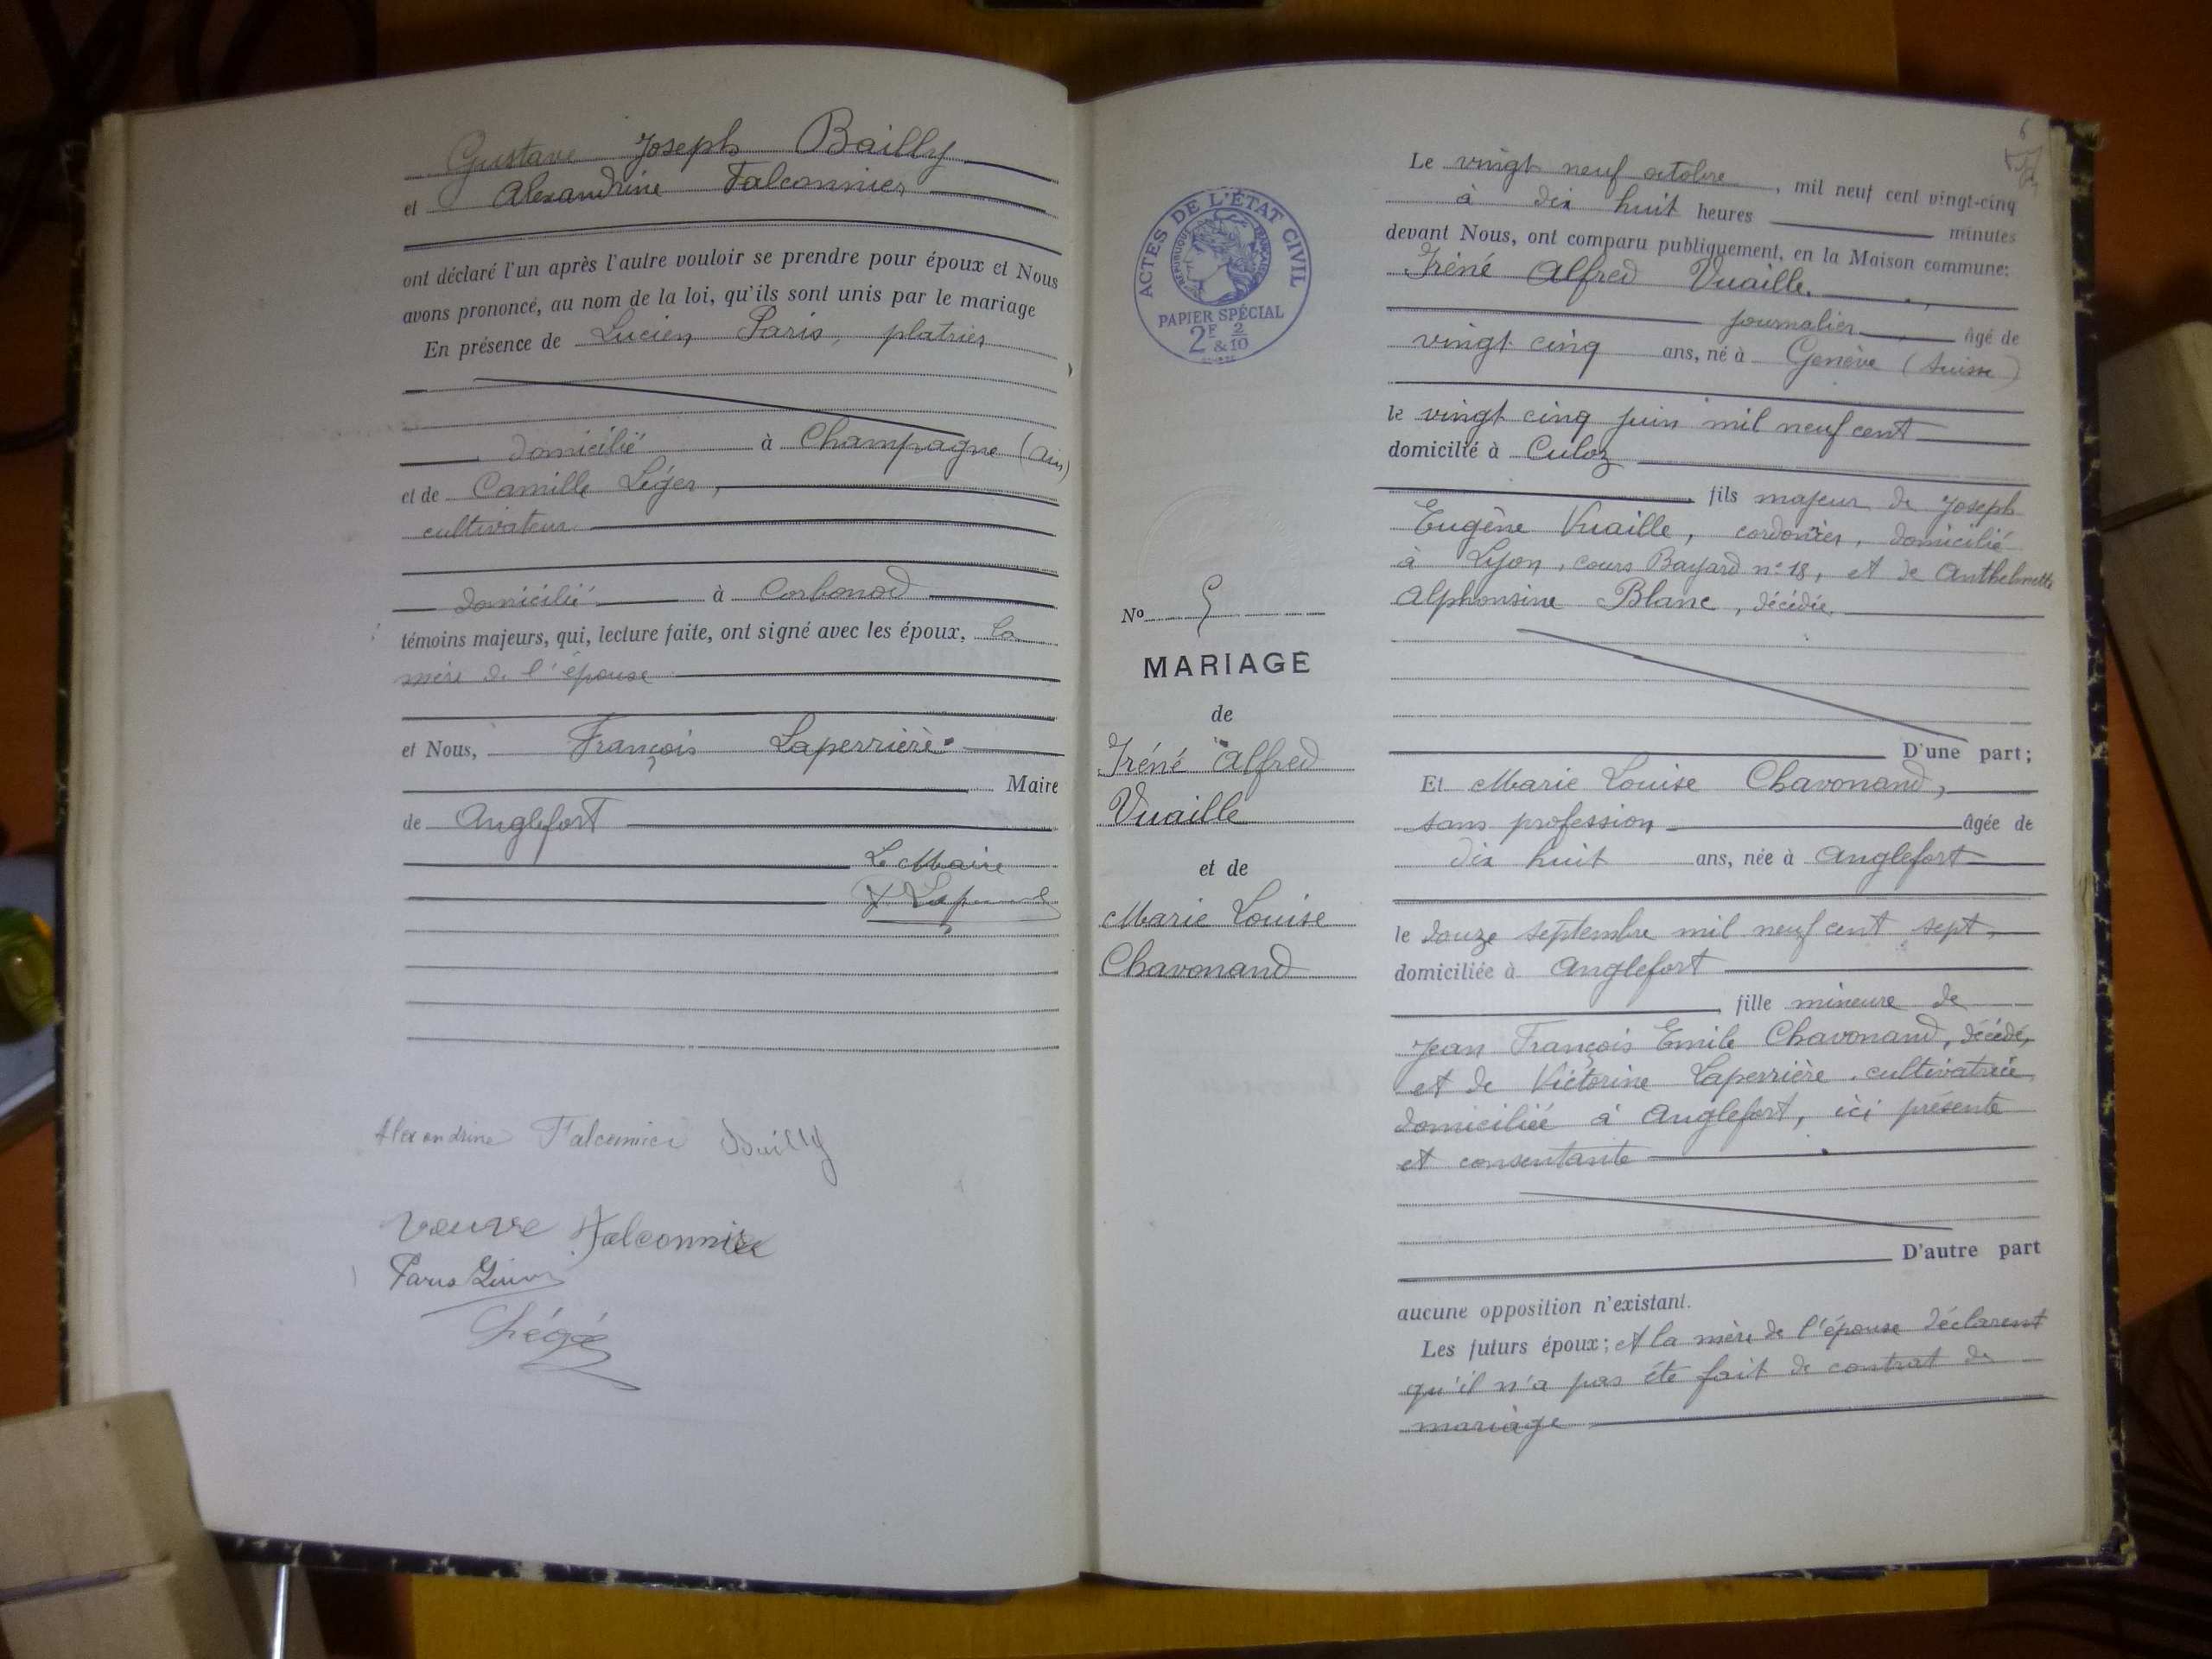 Gustave Joseph Bailly
et Alexandrine Falconnier
ont déclaré l'un après l'autre vouloir se prendre pour époux et Nous
avons prononcé, au nom de la loi, qu'ils sont unis par le mariage
En présence de Lucien Paris, platrier
domicilié à Champagne (Ain)
et de Camille Léger,
cultivateur
domicilié à Corbonod
témoins majeurs, qui, lecture faite, ont signé avec les époux, la
mère de l'épouse
et Nous, François Laperrière
Maire
de Anglefort
Le Maire
Alexandrine Falconnier Bailly
veuve Falconnier
Paris
Légé
ACTES DE L'ÉTAT CIVIL
RÉPUBLIQUE FRANÇAISE
PAPIER SPÉCIAL
2F & 2/10
No 5
MARIAGE
de
Iréné Alfred
Vuaille
et de
Marie Louise
Chavonand
6
Le vingt neuf octobre, mil neuf cent vingt-cinq
à dix huit heures minutes
devant Nous, ont comparu publiquement, en la Maison commune:
Iréné Alfred Vuaille,
journalier âgé de
vingt cinq ans, né à Genève (Suisse)
le vingt cinq juin mil neuf cent
domicilié à Culoz
fils majeur de Joseph
Eugène Vuaille, cordonier, domicilié
à Lyon, cours Bayard n° 18, et de Anthelmette
Alphonsine Blanc, décédée.
D'une part;
Et Marie Louise Chavonand,
sans profession âgée de
dix huit ans, née à Anglefort
le douze septembre mil neuf cent sept,
domiciliée à Anglefort
fille mineure de
Jean François Emile Chavonand, décédé,
et de Victorine Laperrière, cultivatrice
domiciliée à Anglefort, ici présente
et consentante
D'autre part
aucune opposition n'existant.
Les futurs époux; et la mère de l'épouse déclarent
qu'il n'a pas été fait de contrat de
mariage